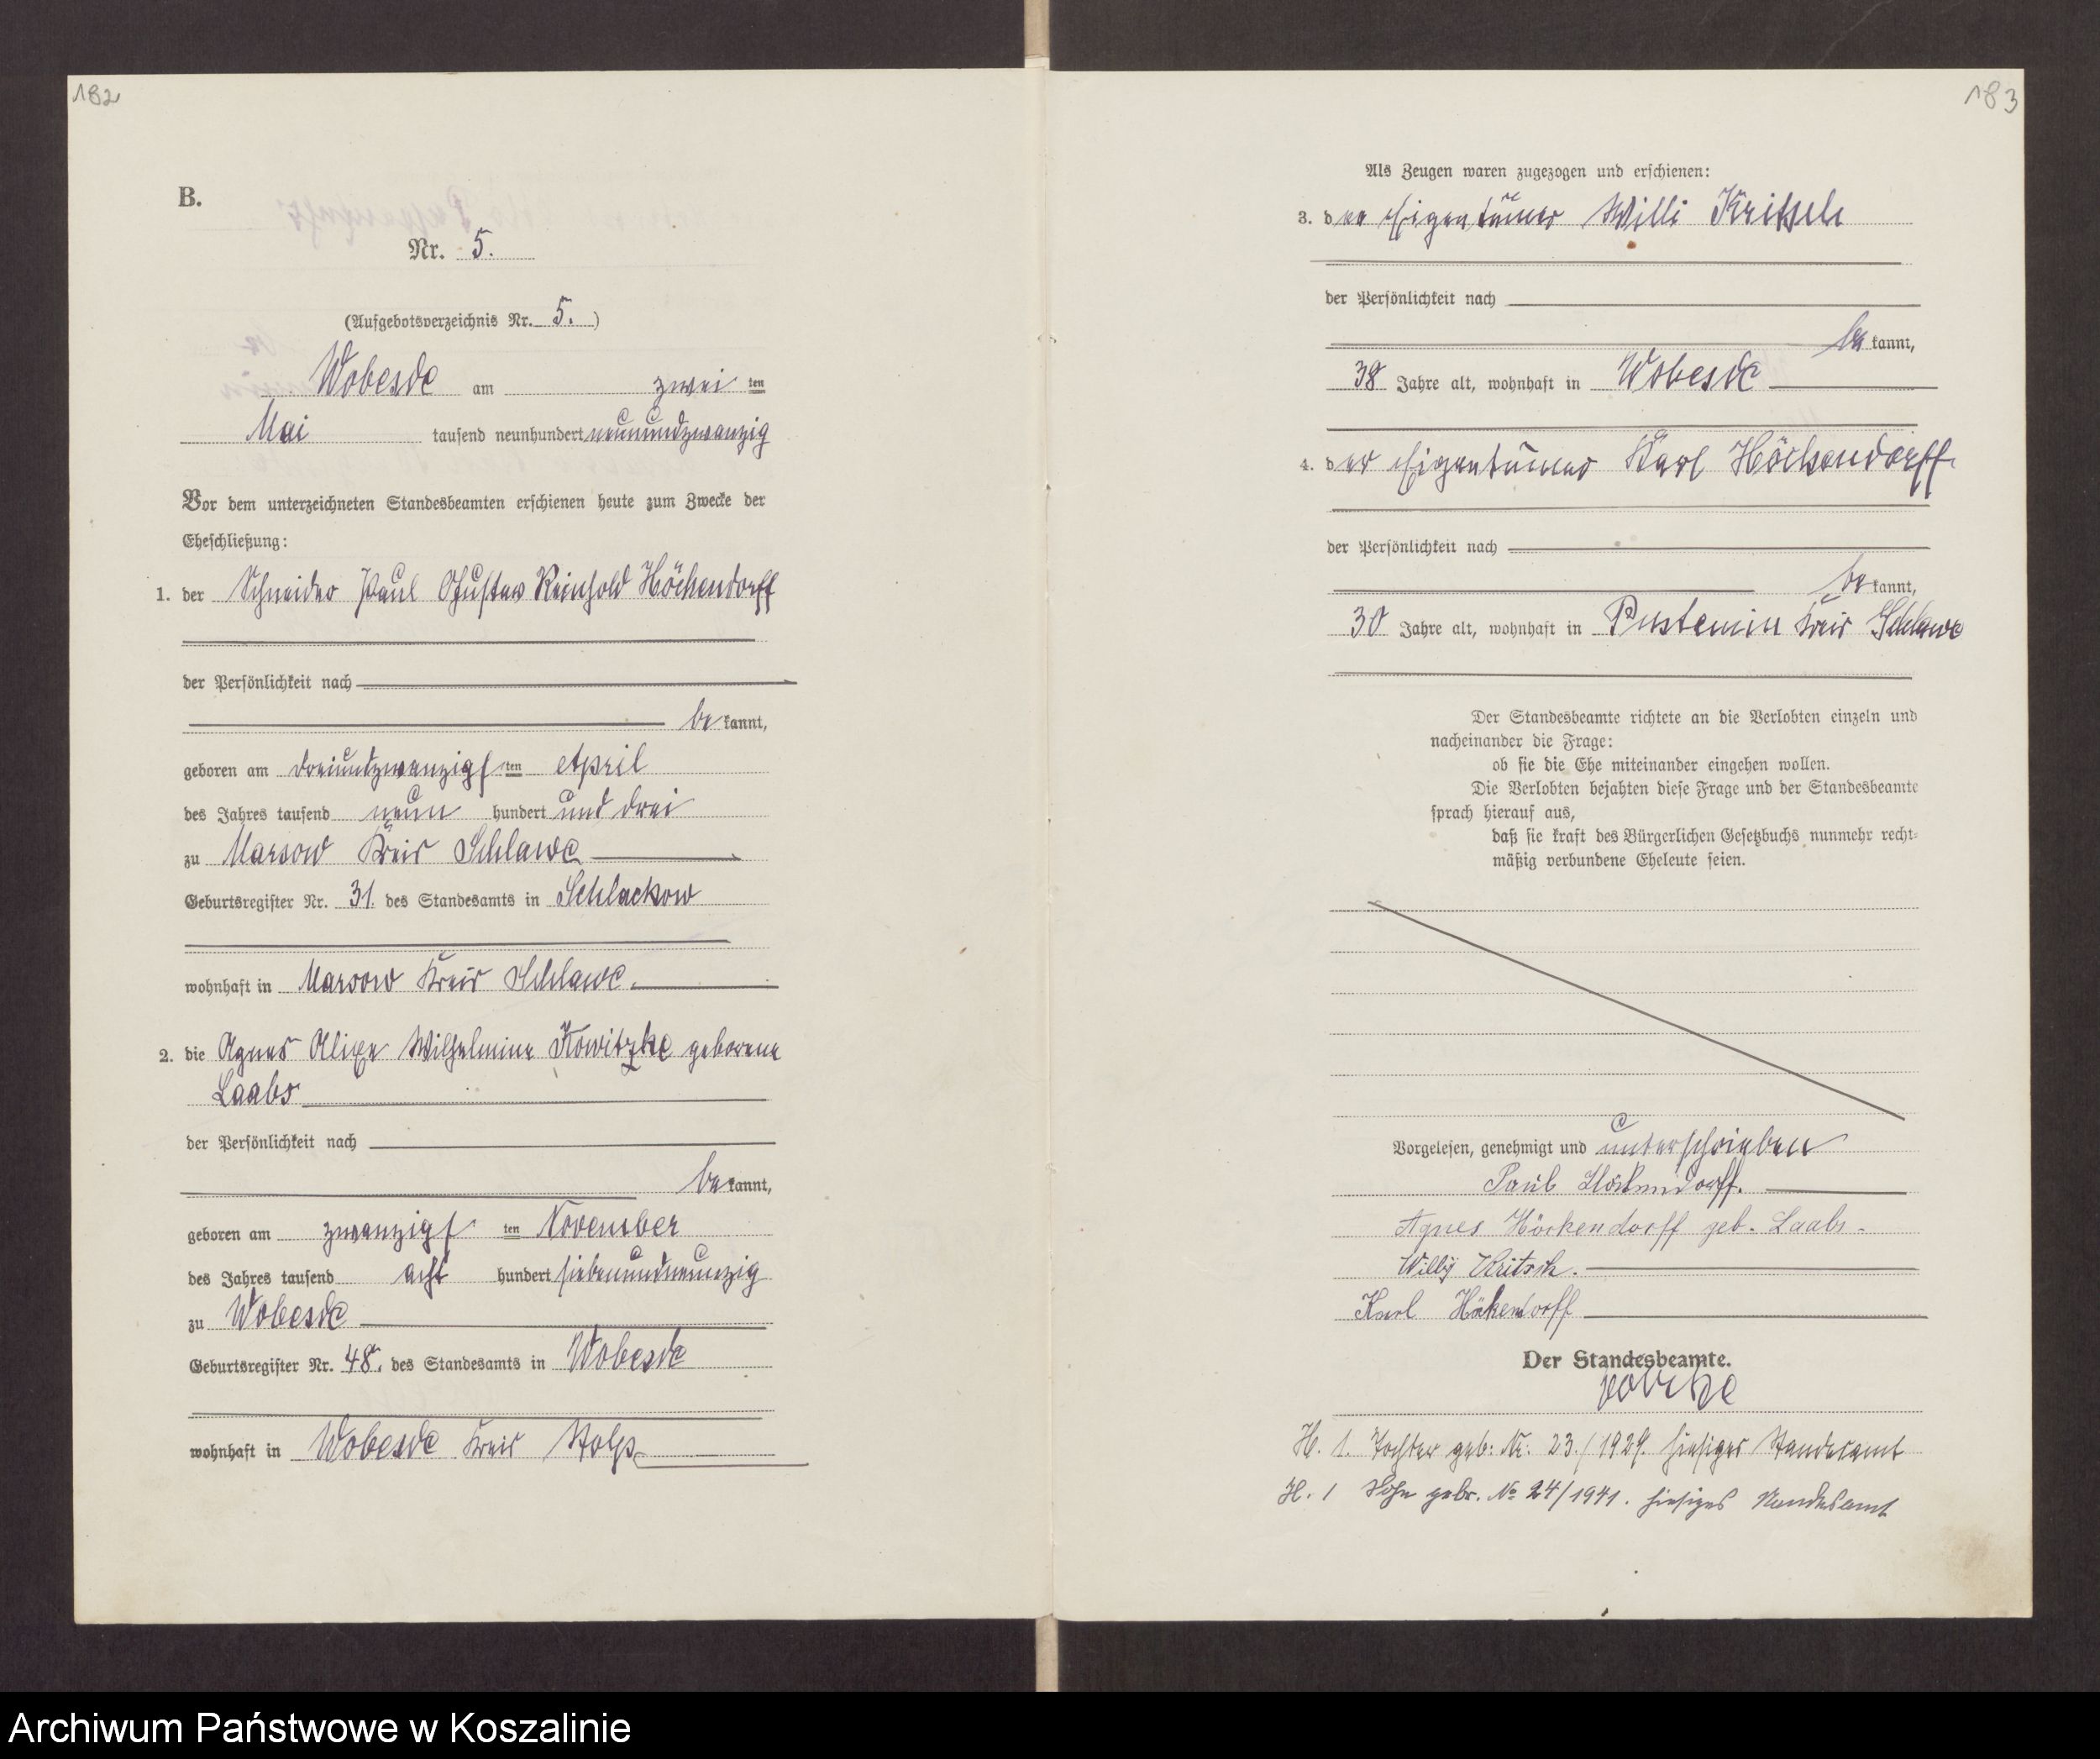 182
B.
Nr. 5.
(Aufgebotsverzeichnis Nr. 5.)
Wobesde am zwei ten
Mai tausend neunhundert neunundzwanzig
Vor dem unterzeichneten Standesbeamten erschienen heute zum Zwecke der
Eheschließung:
1. der Schneider Paul Gustav Reinhold Höckendorff
der Persönlichkeit nach
be kannt,
geboren am dreiundzwanzigs ten April
des Jahres tausend neun hundert und drei
zu Marsow Kreis Schlawe
Geburtsregister Nr. 31. des Standesamts in Schlackow
wohnhaft in Marsow Kreis Schlawe.
2. die Agnes Wilhelmine Kowitzke geborene
Laabs
der Persönlichkeit nach
be kannt,
geboren am zwanzigs ten November
des Jahres tausend acht hundert siebenundneunzig
zu Wobesde
Geburtsregister Nr. 48. des Standesamts in Wobesde
wohnhaft in Wobesde Kreis Stolp
183
Als Zeugen waren zugezogen und erschienen:
3. der Eigentümer Willi Kritsch
der Persönlichkeit nach
be kannt,
38 Jahre alt, wohnhaft in Wobesde
4. der Eigentümer Karl Höckendorff
der Persönlichkeit nach
be kannt,
30 Jahre alt, wohnhaft in Pustamin Kreis Schlawe
Der Standesbeamte richtete an die Verlobten einzeln und
nacheinander die Frage:
ob sie die Ehe miteinander eingehen wollen.
Die Verlobten bejahten diese Frage und der Standesbeamte
sprach hierauf aus,
daß sie kraft des Bürgerlichen Gesetzbuchs nunmehr recht-
mäßig verbundene Eheleute seien.
Vorgelesen, genehmigt und unterschrieben
Paul Höckendorff.
Agnes Höckendorff geb. Laabs.
Willy Kritsch.
Karl Höckendorff
Der Standesbeamte.
H. 1. Tochter geb: Nr. 23./1929. hiesiges Standesamt
H. 1 Sohn gebr. No 24/1941. hiesiges Standesamt
Archiwum Państwowe w Koszalinie